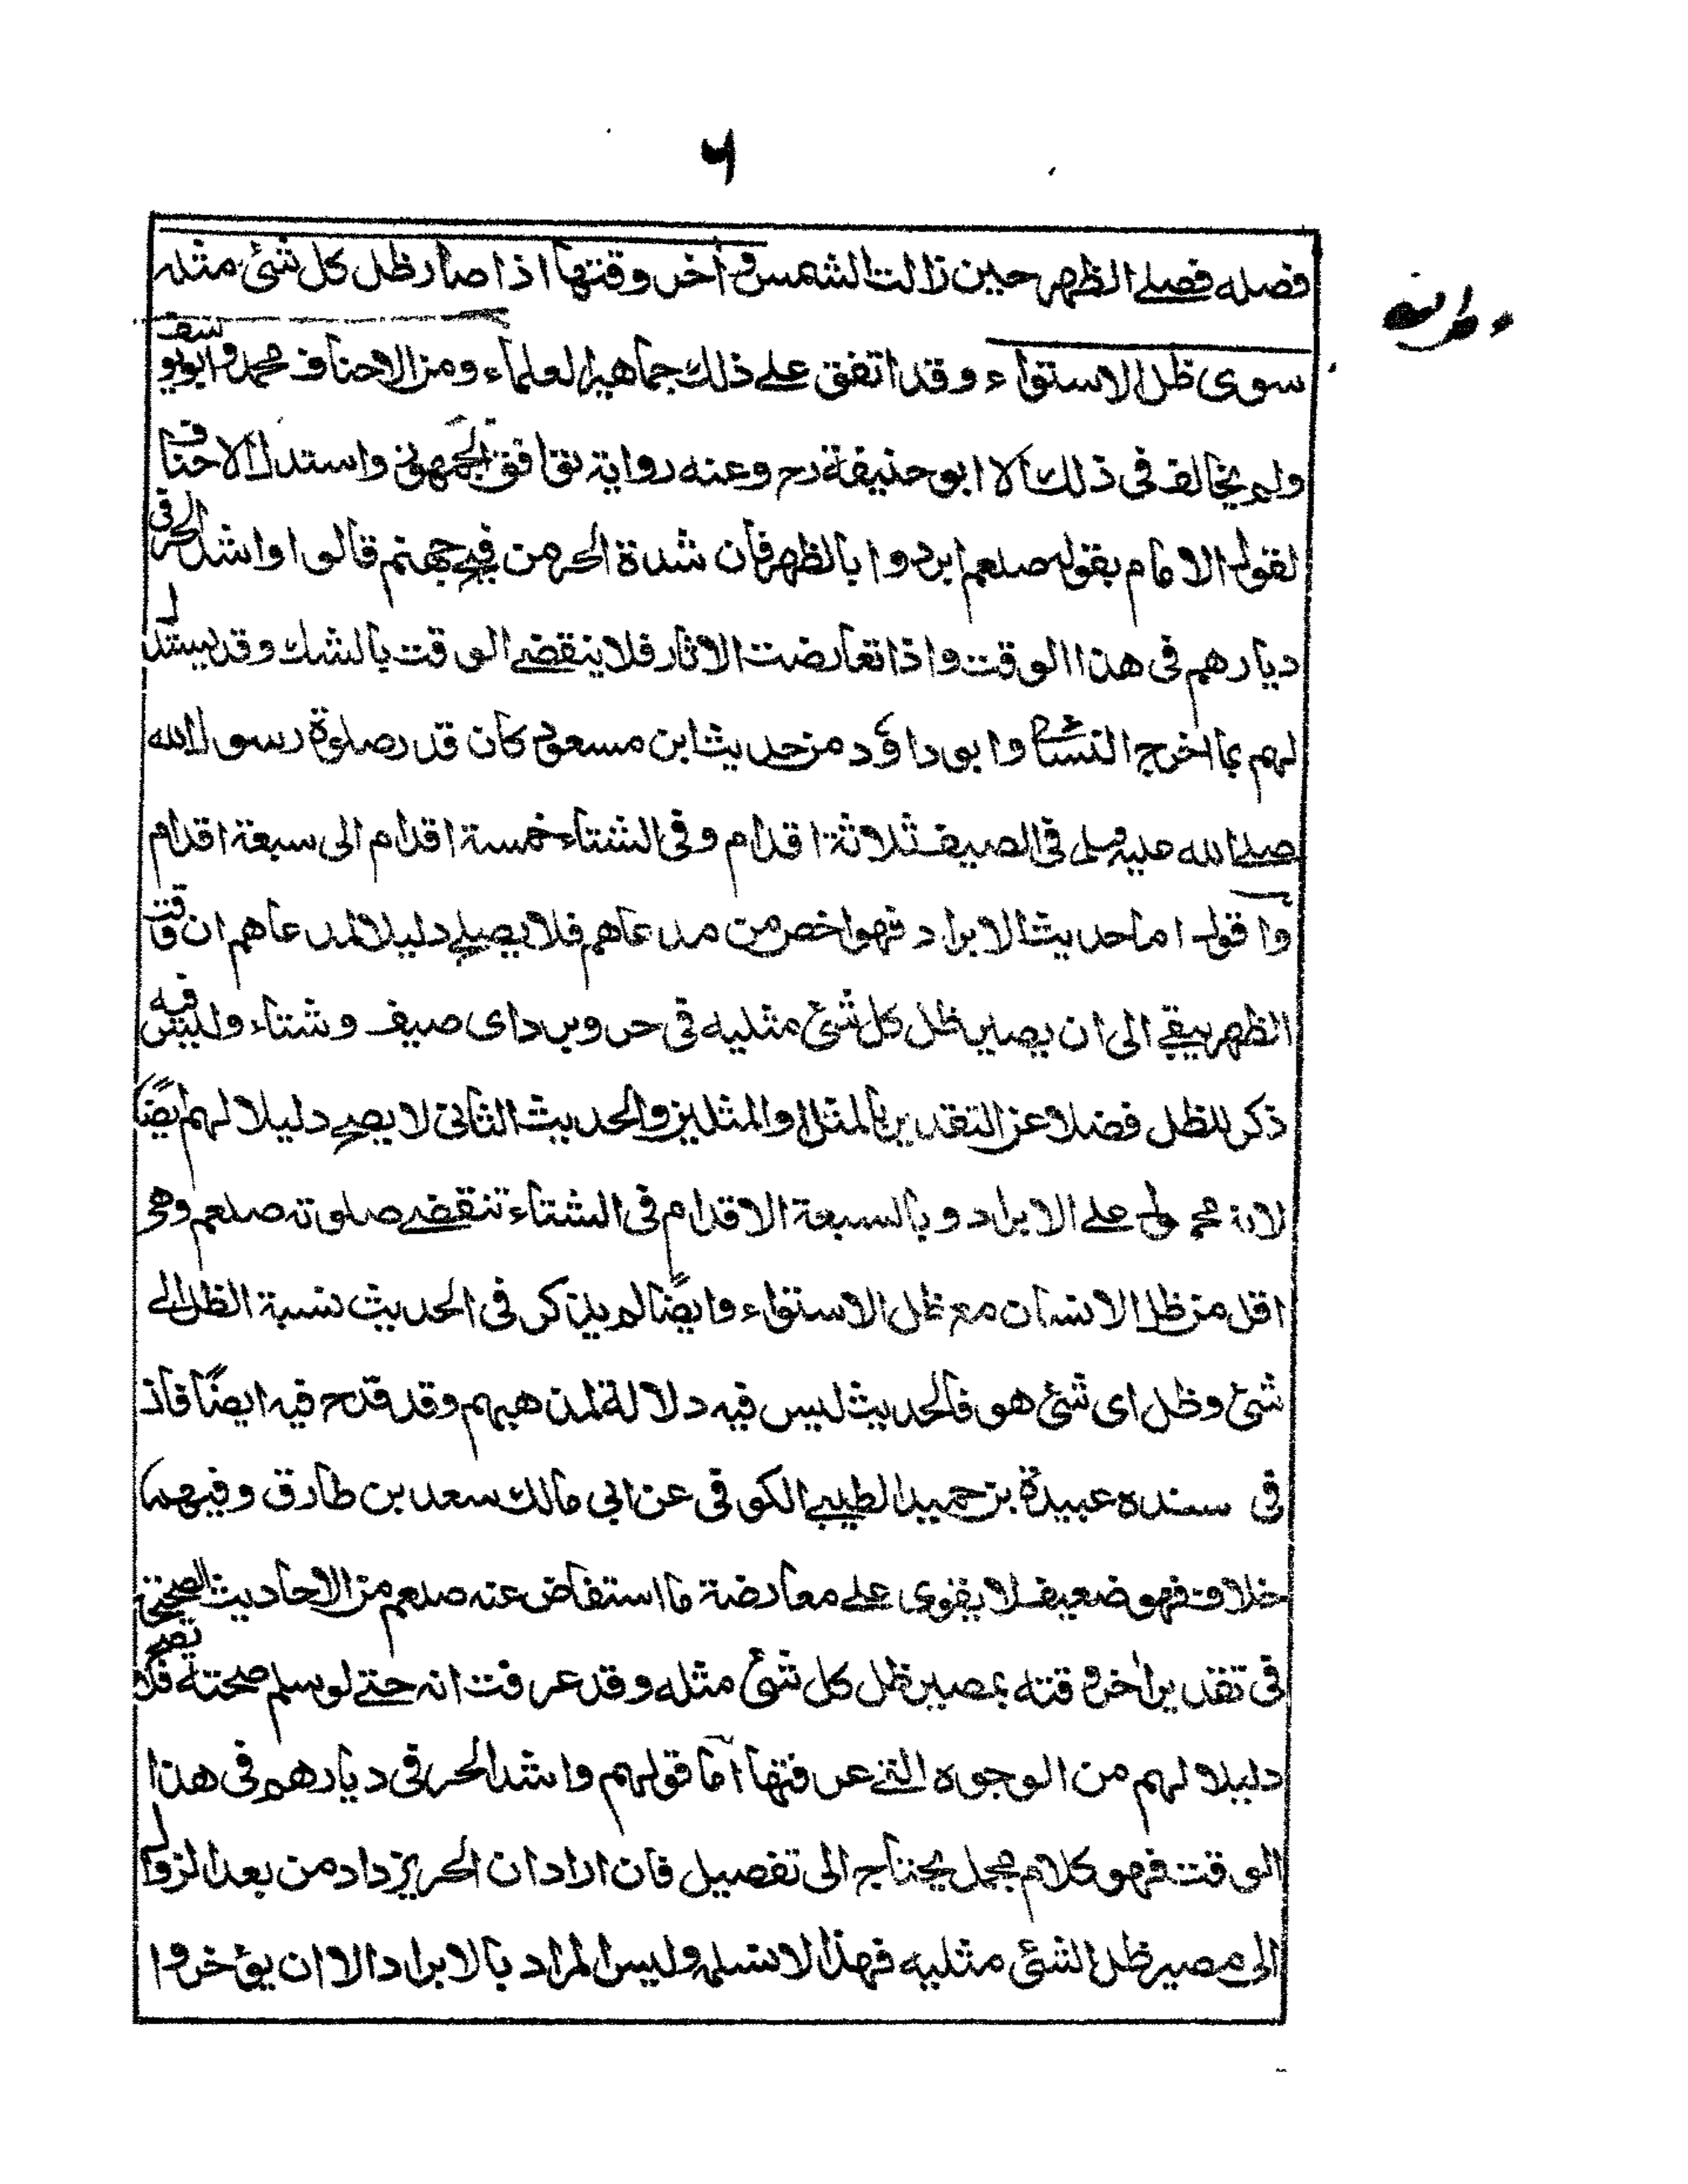 ۶
فصله فصلے الظهر حين زالت الشمس و اخر وقتها اذا صار ظل كل شئ مثله
سوى ظل الاستواء وقد اتفق علے ذلك جماهير العلماء ومن الاحناف محمد وابويوسف
ولم يخالف فى ذلك الا ابو حنيفة رح وعنه رواية توافق الجمهور واستدل الاحناف
لقول الامام بقوله صلعم ابردوا بالظهر فان شدة الحر من فيح جهنم قالوا واشد الحر فى
ديارهم فى هذا الوقت واذا تعارضت الاثار فلا ينقضے الوقت بالشك وقد يستدل
لهم بما اخرج النسائى وابو داؤد من حديث ابن مسعود كان قدر صلوة رسول الله
صلے الله عليه وسلم فى الصيف ثلاثة اقدام وفى الشتاء خمسة اقدام الى سبعة اقدام
واقول اما حديث الابراد فهو اخص من مدعاهم فلا يصلح دليلا لمدعاهم ان وقت
الظهر يبقے الى ان يصير ظل كل شئ مثليه فى حر وبرد اى صيف وشتاء وليس فيه
ذكر للظل فضلا عن التقدير بالمثل والمثلين والحديث الثانى لا يصح دليلا لهم ايضًا
لانه محمول علے الابراد وبالسبعة الاقدام فى الشتاء تنقضے صلوته صلعم وهى
اقل من ظل الانسان مع ظل الاستواء وايضًا لم يذكر فى الحديث نسبة الظل الے
شئ وظل اى شئ هو فالحديث ليس فيه دلالة لمذهبهم وقد قدح فيه ايضًا فاذ
فى سنده عبيدة بن حميد الطيبے الكوفى عن ابى مالك سعد بن طارق وفيهما
خلاف فهو ضعيف لا يقوى علے معارضة ما استفاض عنه صلعم من الاحاديث الصحيحة
فى تقدير اخر وقته بمصير ظل كل شئ مثله وقد عرفت انه حتے لو سلم صحته فلا يصح
دليلا لهم من الوجوه التے عرفتها اما قولهم واشد الحر فى ديارهم فى هذا
الوقت فهو كلام مجمل يحتاج الى تفصيل فان اراد ان الحر يزداد من بعد الزوال
الى مصير ظل الشئ مثليه فهذا لا نسلمه وليس المراد بالابراد الا ان يؤخروا